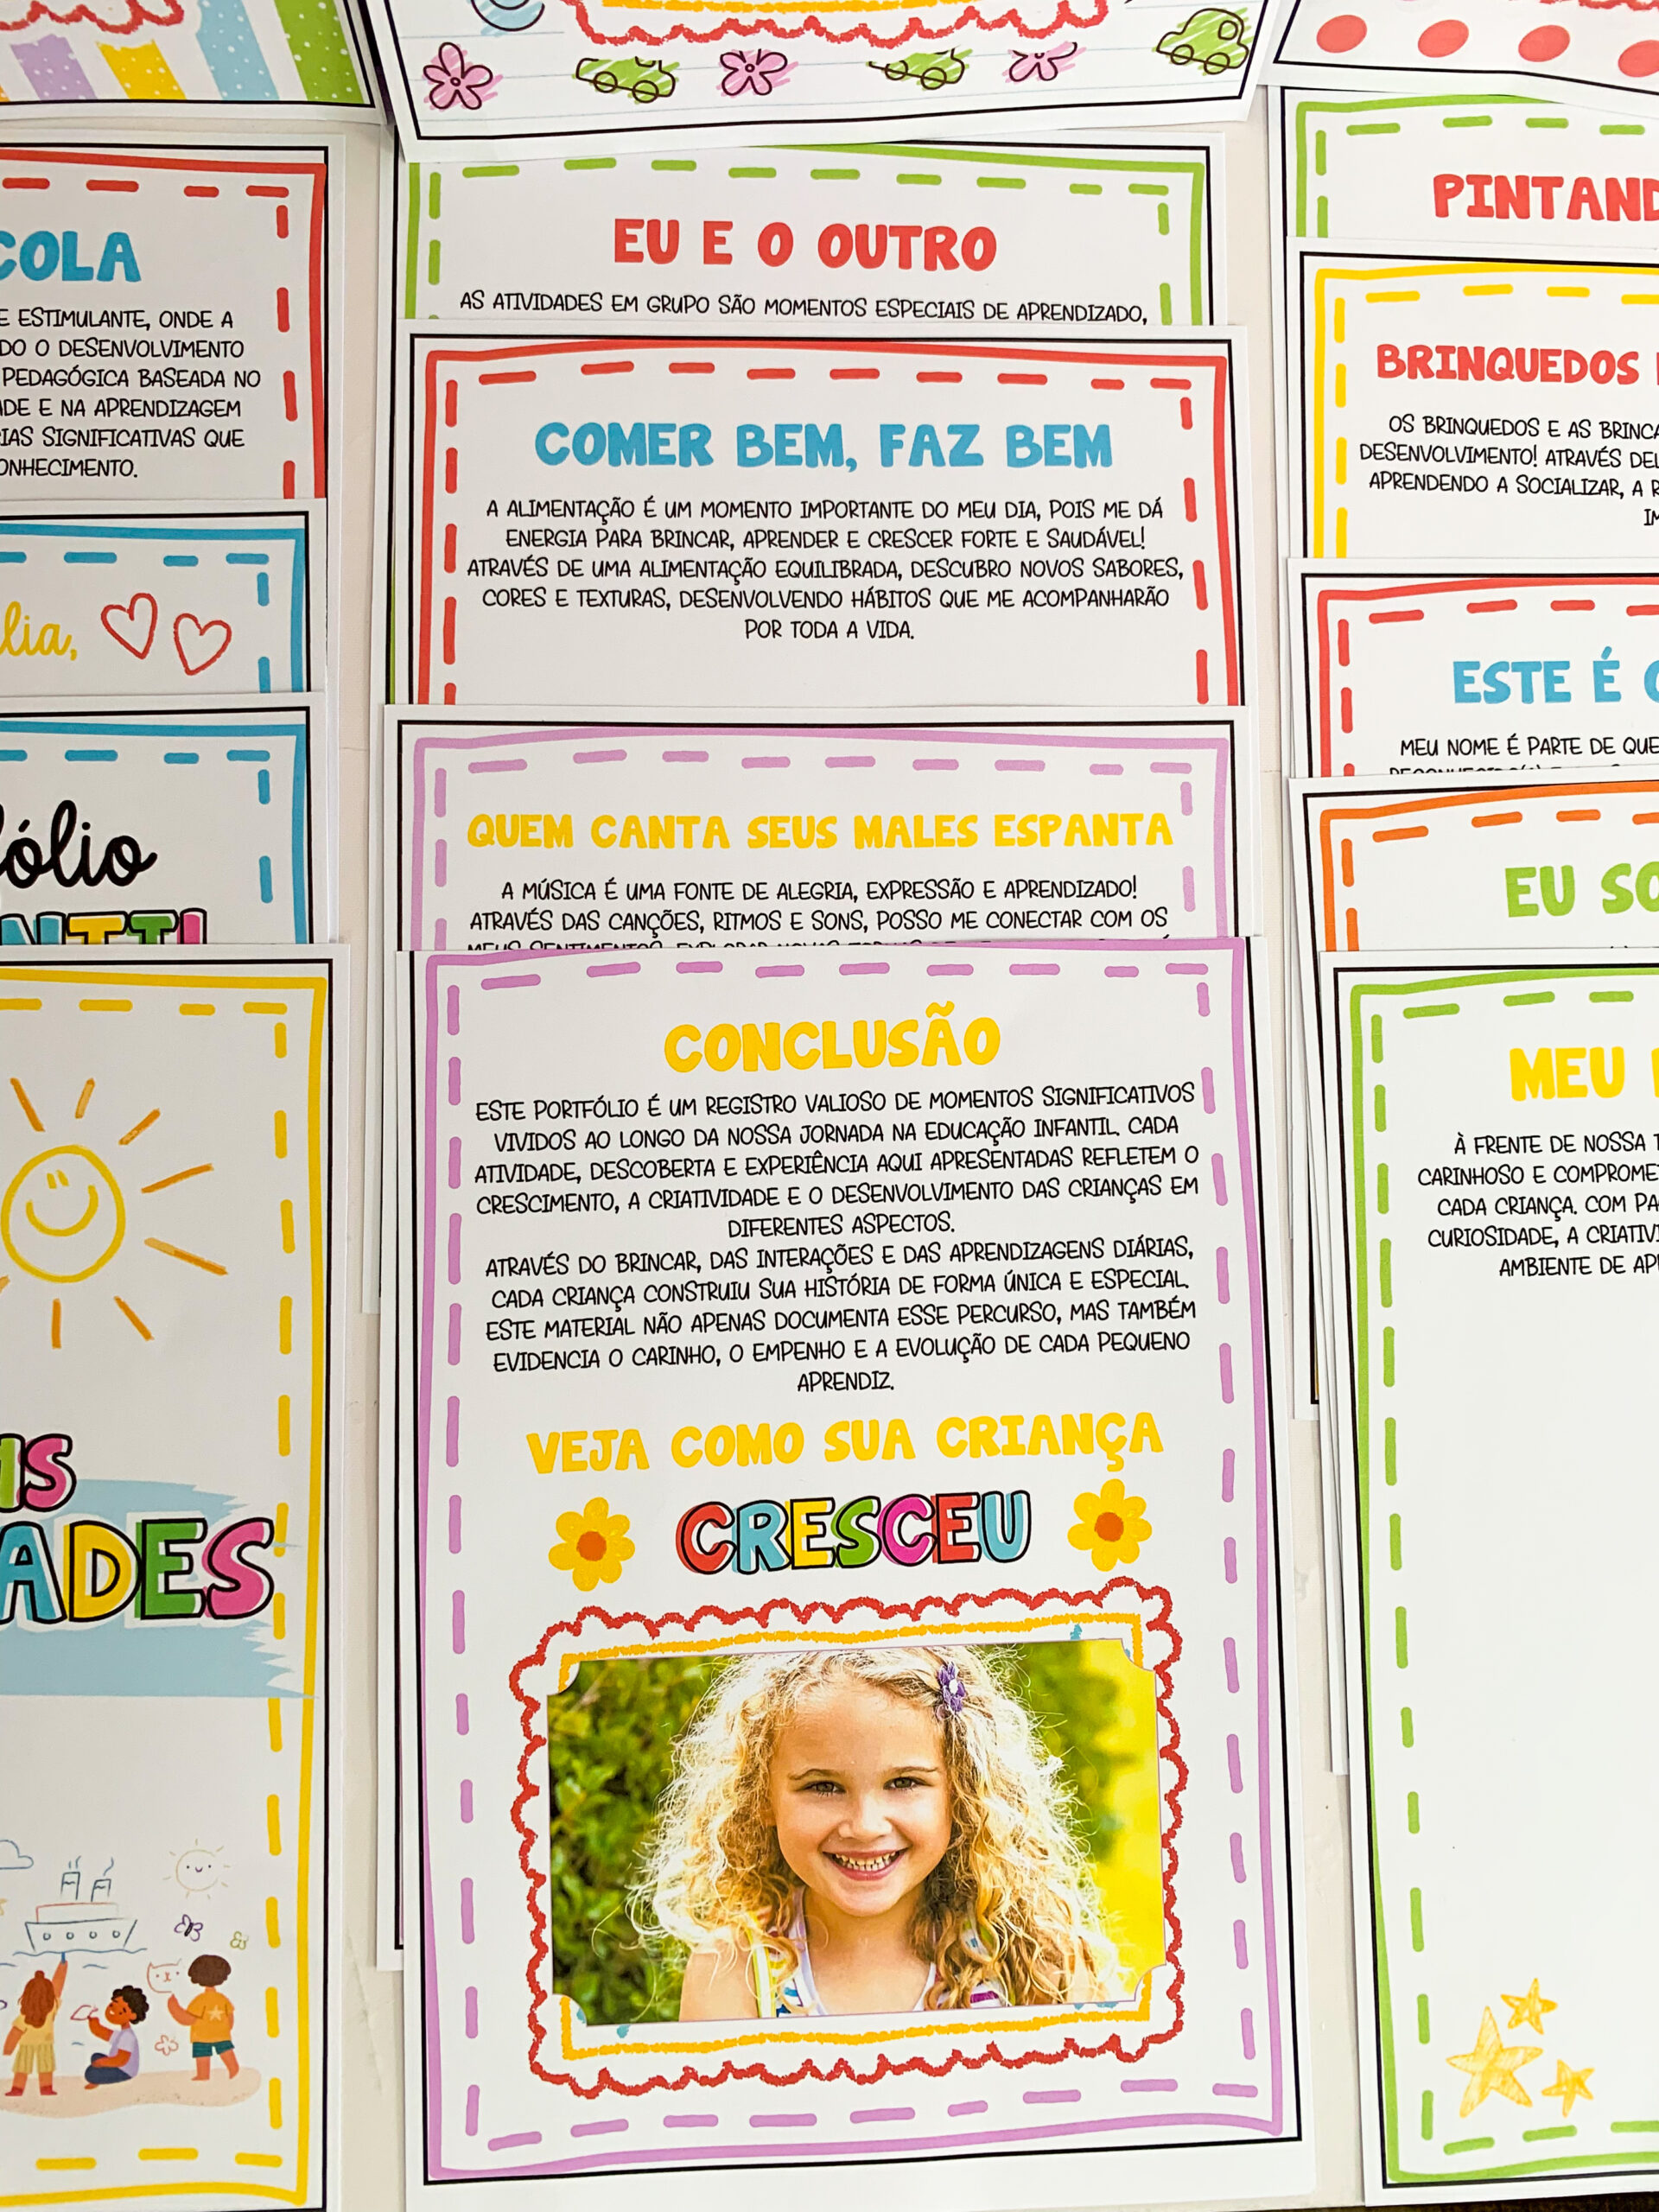 COLA
E ESTIMULANTE, ONDE A
DO O DESENVOLVIMENTO
PEDAGÓGICA BASEADA NO
ADE E NA APRENDIZAGEM
IAS SIGNIFICATIVAS QUE
ONHECIMENTO.
lia,
fólio
NTIL
IS
ADES
EU E O OUTRO
AS ATIVIDADES EM GRUPO SÃO MOMENTOS ESPECIAIS DE APRENDIZADO,
COMER BEM, FAZ BEM
A ALIMENTAÇÃO É UM MOMENTO IMPORTANTE DO MEU DIA, POIS ME DÁ
ENERGIA PARA BRINCAR, APRENDER E CRESCER FORTE E SAUDÁVEL!
ATRAVÉS DE UMA ALIMENTAÇÃO EQUILIBRADA, DESCUBRO NOVOS SABORES,
CORES E TEXTURAS, DESENVOLVENDO HÁBITOS QUE ME ACOMPANHARÃO
POR TODA A VIDA.
QUEM CANTA SEUS MALES ESPANTA
A MÚSICA É UMA FONTE DE ALEGRIA, EXPRESSÃO E APRENDIZADO!
ATRAVÉS DAS CANÇÕES, RITMOS E SONS, POSSO ME CONECTAR COM OS
MEUS SENTIMENTOS, EXPLORAR NOVAS FORMAS DE
CONCLUSÃO
ESTE PORTFÓLIO É UM REGISTRO VALIOSO DE MOMENTOS SIGNIFICATIVOS
VIVIDOS AO LONGO DA NOSSA JORNADA NA EDUCAÇÃO INFANTIL. CADA
ATIVIDADE, DESCOBERTA E EXPERIÊNCIA AQUI APRESENTADAS REFLETEM O
CRESCIMENTO, A CRIATIVIDADE E O DESENVOLVIMENTO DAS CRIANÇAS EM
DIFERENTES ASPECTOS.
ATRAVÉS DO BRINCAR, DAS INTERAÇÕES E DAS APRENDIZAGENS DIÁRIAS,
CADA CRIANÇA CONSTRUIU SUA HISTÓRIA DE FORMA ÚNICA E ESPECIAL.
ESTE MATERIAL NÃO APENAS DOCUMENTA ESSE PERCURSO, MAS TAMBÉM
EVIDENCIA O CARINHO, O EMPENHO E A EVOLUÇÃO DE CADA PEQUENO
APRENDIZ.
VEJA COMO SUA CRIANÇA
CRESCEU
PINTAND
BRINQUEDOS
OS BRINQUEDOS E AS BRINCA
DESENVOLVIMENTO! ATRAVÉS DEL
APRENDENDO A SOCIALIZAR, A R
IM
ESTE É O
MEU NOME É PARTE DE QUE
EU SO
MEU
À FRENTE DE NOSSA T
CARINHOSO E COMPROME
CADA CRIANÇA. COM PA
CURIOSIDADE, A CRIATIVI
AMBIENTE DE AP